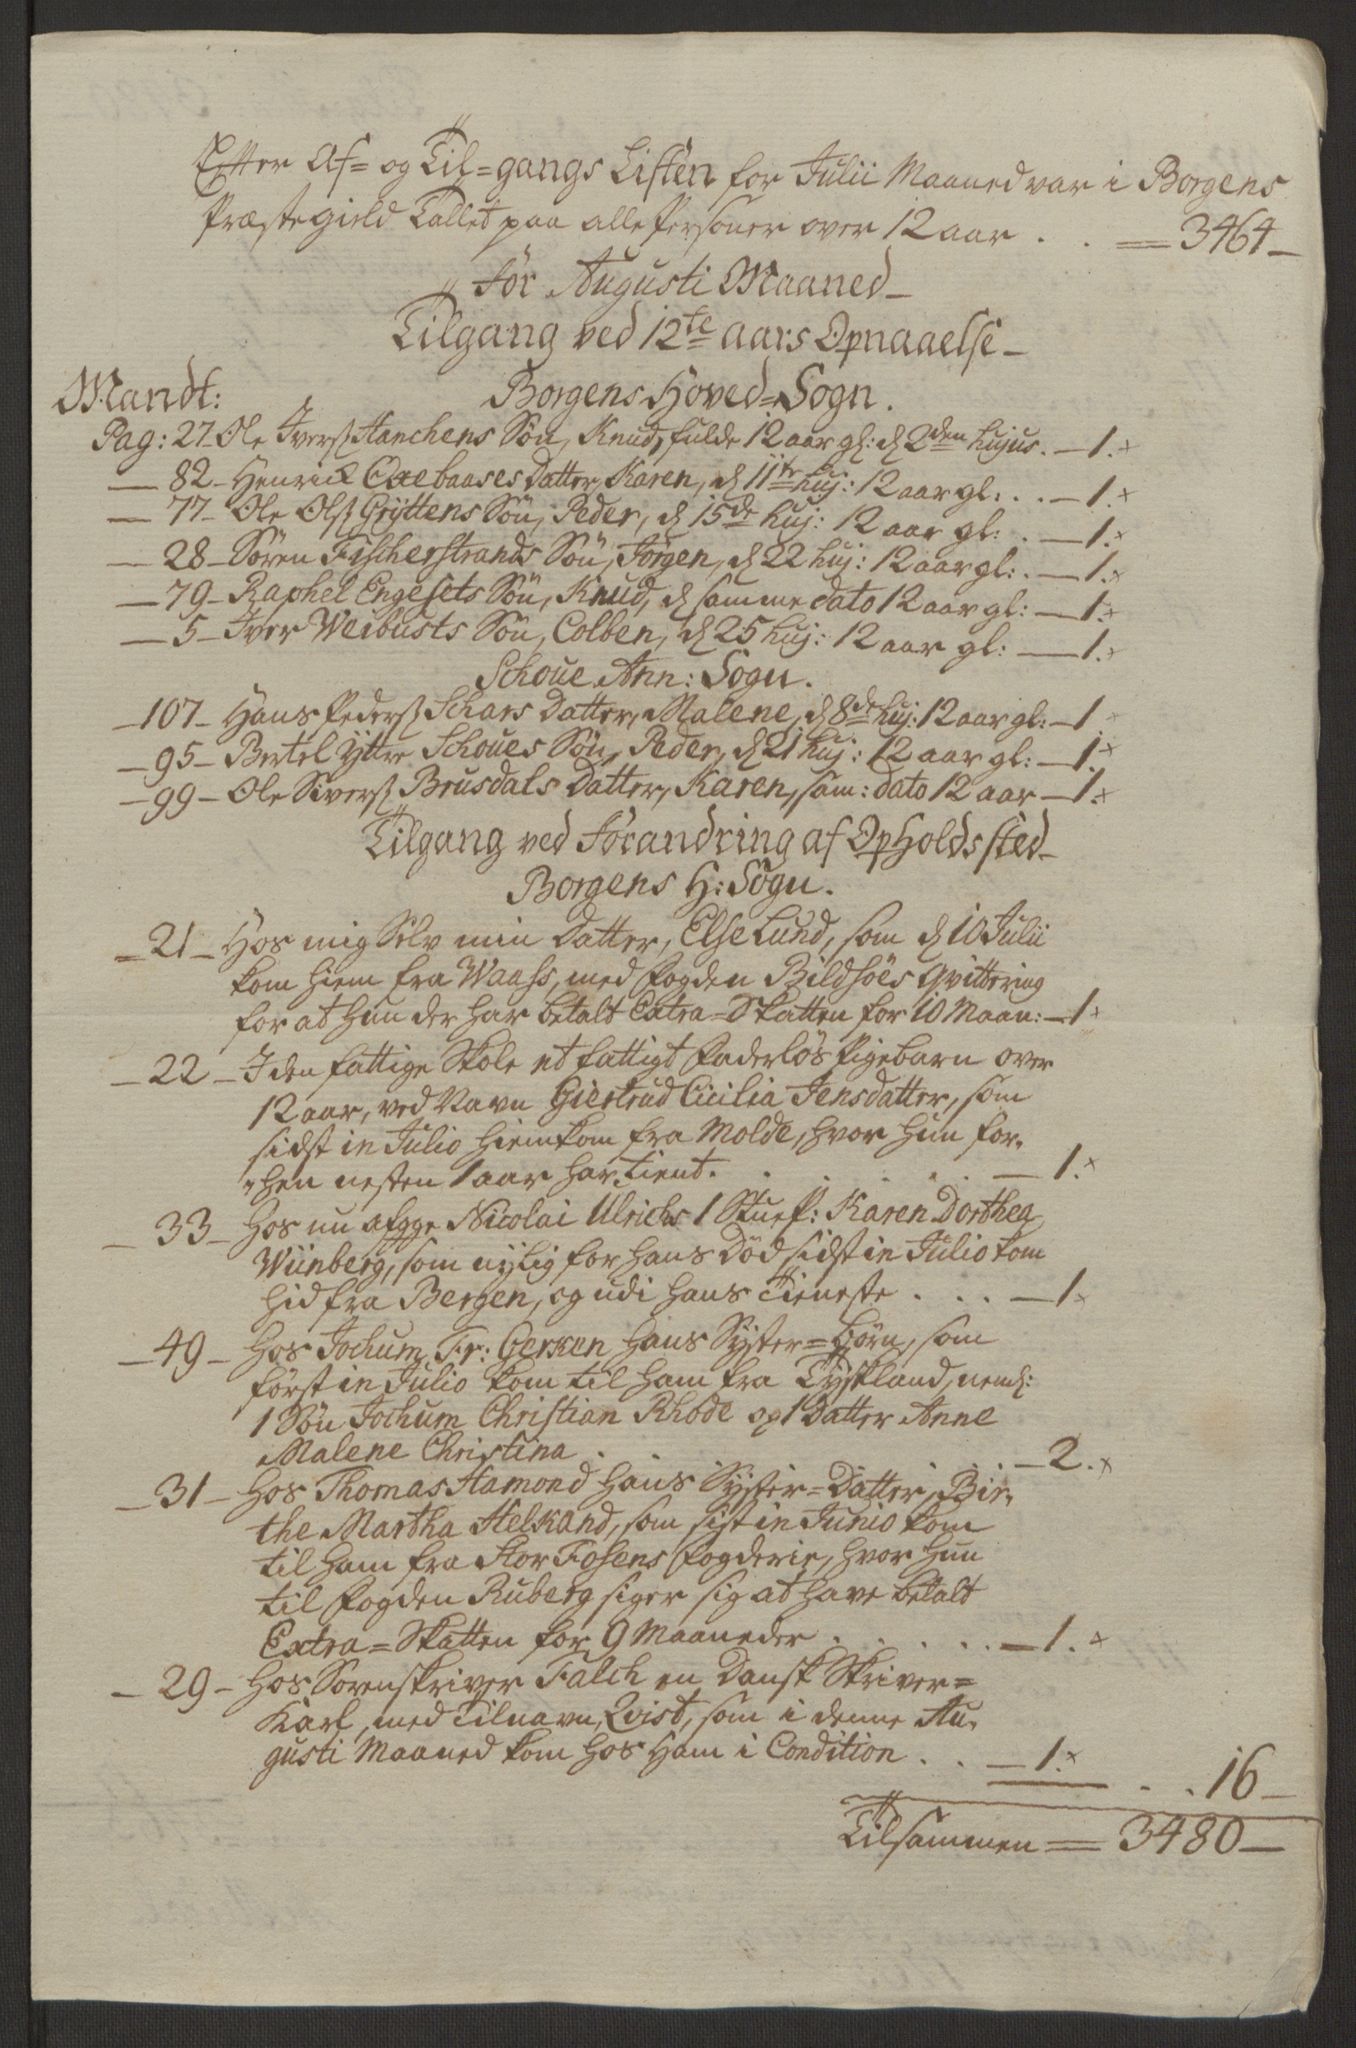 Efter Af= og Til=gangs Listen for Julii Maaned var i Borgens
Præstegield Tallet paa alle Personer over 12 aar . . = 3464 -
For Augusti Maaned -
Tilgang ved 12te aars Opnaaelse -
Mandt: Borgens Hoved=Sogn.
Pag: 27. Ole Iverß Hanchens Søn, Knud, fulde 12 aar gl: d 2den hujus. - 1. x
— 82 - Henrick Oxebaases Datter, Karen, d 11te huj: 12 aar gl: . . - 1. x
— 77 - Ole Olß Gryttens Søn, Peder, d 15de huj: 12 aar gl: . - 1. x
— 28 - Søren Fischerstrands Søn, Jørgen, d 22 huj: 12 aar gl: . - 1. x
— 79 - Raphel Engesets Søn, Knud, d samme dato 12 aar gl: - 1. x
— 5 - Iver Weibusts Søn, Colben, d 25 huj: 12 aar gl: — 1. x
Schoue Ann: Sogn.
— 107 - Hans Pederß Schars Datter, Malene, d 8de huj: 12 aar gl: - 1 x
— 95 - Bertel Yttre Schoues Søn, Peder, d 21 huj: 12 aar gl: - 1. x
— 99 - Ole Siverß Brusdals Datter, Karen, sam: dato 12 aar - 1. x
Tilgang ved Forandring af Opholds sted -
Borgens H: Sogn.
= 21 - Hos mig Selv min Datter, Else Lund, som d 10 Julii
kom hiem fra Waass, med Fogden Bildsøes Qvittering
for at hun der har betalt Extra=Skatten for 10 Maan: - 1 x
— 22 - I den fattige Skole et fattigt Faderløs Pigebarn over
12 aar, ved Navn Giertrud Cicilia Jensdatter, som
sidst in Julio hiemkom fra Molde, hvor hun for=
=hen nesten 1 aar har tient. . . . . . — 1. x
— 33 - Hos nu afgge Nicolai Ulrichs 1 Stuep: Karen Dorthea
Wiinberg, som nylig for hans Død sidst in Julio kom
hid fra Bergen, og udi hans Tieneste . . . - 1 x
— 49 - Hos Jochum Fr: Gerken hans Syster=Børn, som
først in Julio kom til ham fra Tyskland, neml:
1 Søn Jochum Christian Rhode og 1 Datter Anne
Malene Christina . . - 2. x
— 31 - Hos Thomas Hamond hans Syster=Datter, Bir=
the Martha Helkand, som sist in Junio kom
til ham fra Stor Fosens Fogderie, hvor hun
til Fogden Ruberg siger sig at have betalt
Extra=Skatten for 9 Maaneder . . . . . . - 1. x
— 29 - Hos Sorenskriver Falch en Dansk Skriver=
Karl, med Tilnavn, Qvist, som i denne Au=
gusti Maaned kom hos Ham i Condition . . - 1. x
. . 16 -
Tilsammen = 3480 -